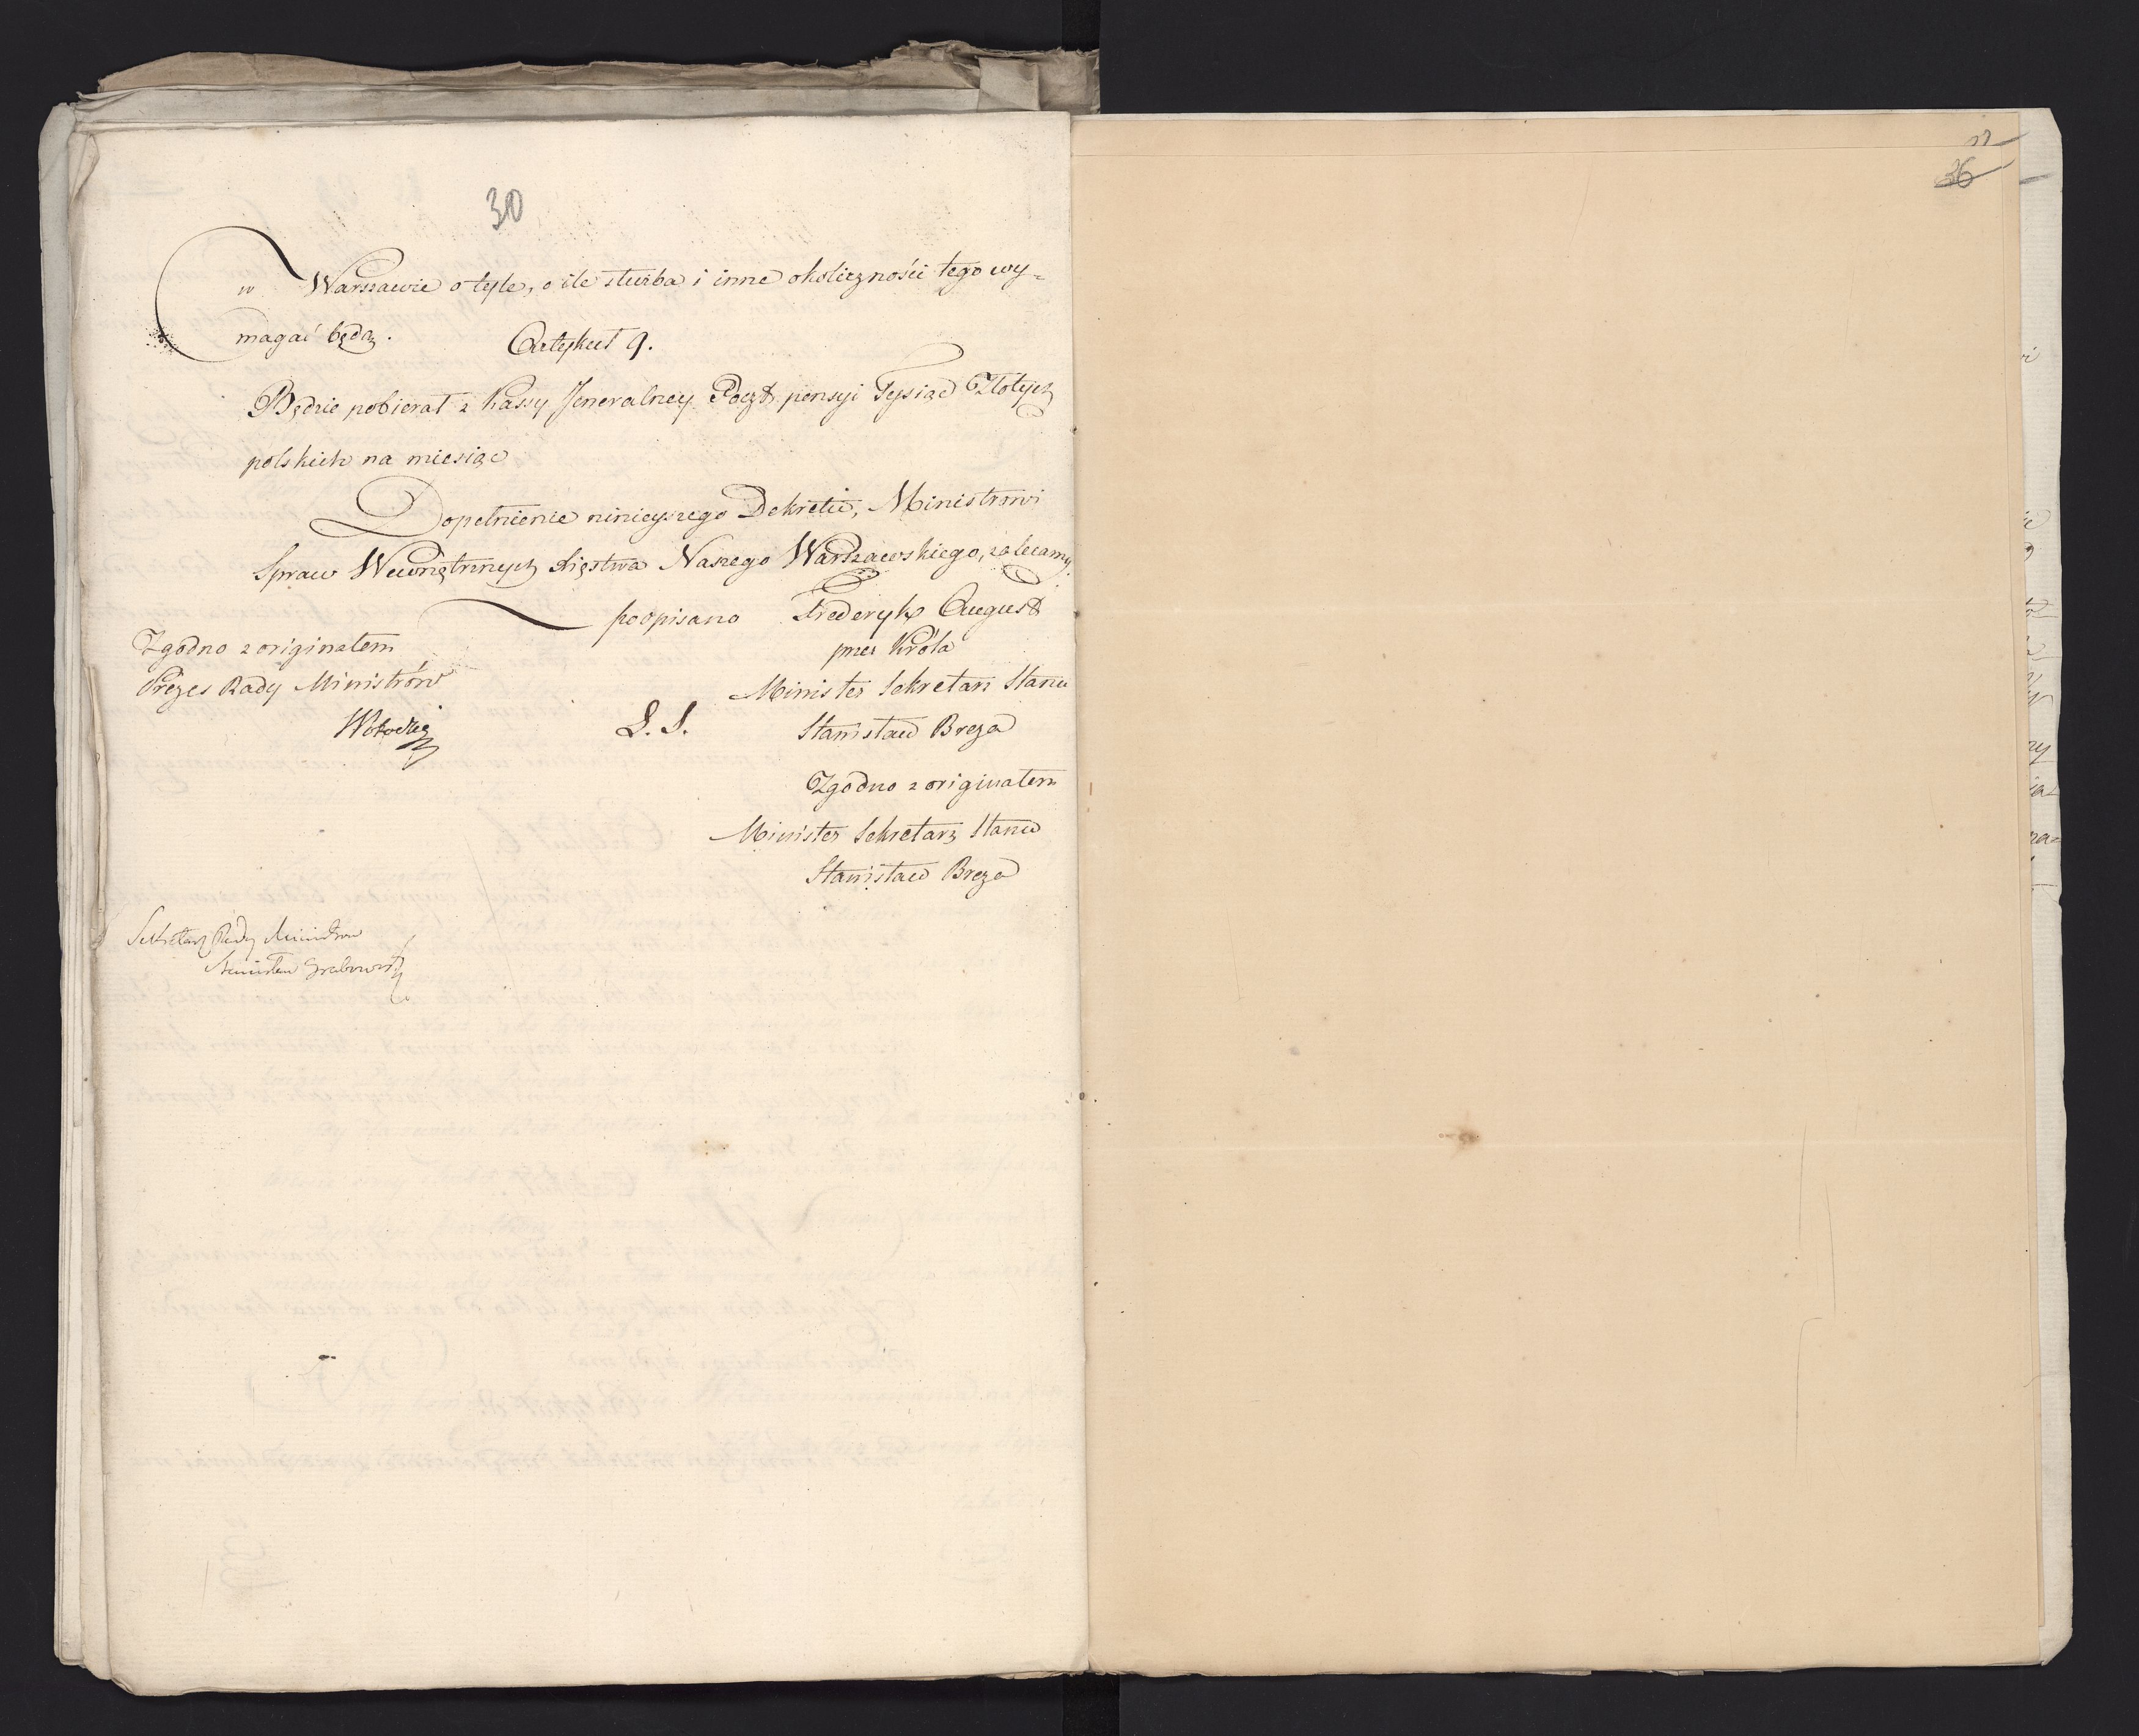 30
w Warszawie o tyle, o ile służba i inne okoliczności tego wy=
magać będą.
Artykuł 9.
Będzie pobierał z Kassy Jeneralney Poczt pensyi Tysiąc Złotych
polskich na miesiąc
Dopełnienie ninieyszego Dekretu, Ministrowi
Spraw Wewnętrznych Xięstwa Naszego Warszawskiego, zalecamy.
podpisano Frederyk August
przez Króla
Minister Sekretarz Stanu
L. S. Stanisław Breza
Zgodno z originałem
Minister Sekretarz Stanu
Stanisław Breza
Zgodno z originałem
Prezes Rady Ministrów
Sekretarz Rady Ministrow
Stanisław Grabowski
36